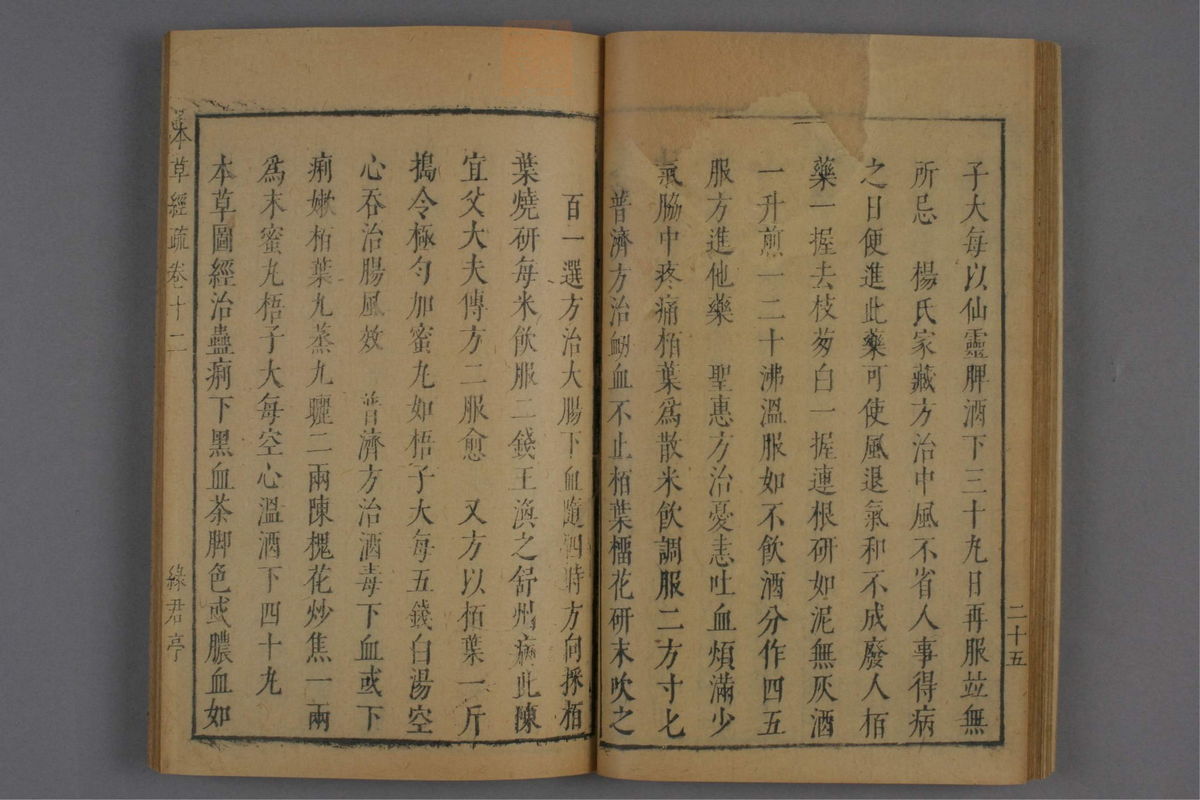 子大每以仙靈脾酒下三十丸日再服並無
所忌　楊氏家藏方治中風不省人事得病
之日便進此藥可使風退氣和不成廢人栢
藥一握去枝葱白一握連根研如泥無灰酒
一升煎一二十沸溫服如不飲酒分作四五
服方進他藥　聖惠方治憂恚吐血煩滿少
氣胸中疼痛栢葉爲散米飲調服二方寸七
普濟方治衂血不止栢葉榴花研末吹之
二十五
百一選方治大腸下血隨四時方向採栢
葉燒研每米飲服二錢王渙之舒州病此陳
宜父大夫傳方二服愈　又方以栢葉一斤
搗令極勻加蜜丸如梧子大每五錢白湯空
心吞治腸風效　普濟方治酒毒下血或下
痢嫩栢葉九蒸九曬二兩陳槐花炒焦一兩
爲末蜜丸梧子大每空心溫酒下四十丸
本草圖經治蠱痢下黑血茶脚色或膿血如
本草經疏 卷十二
綠君亭